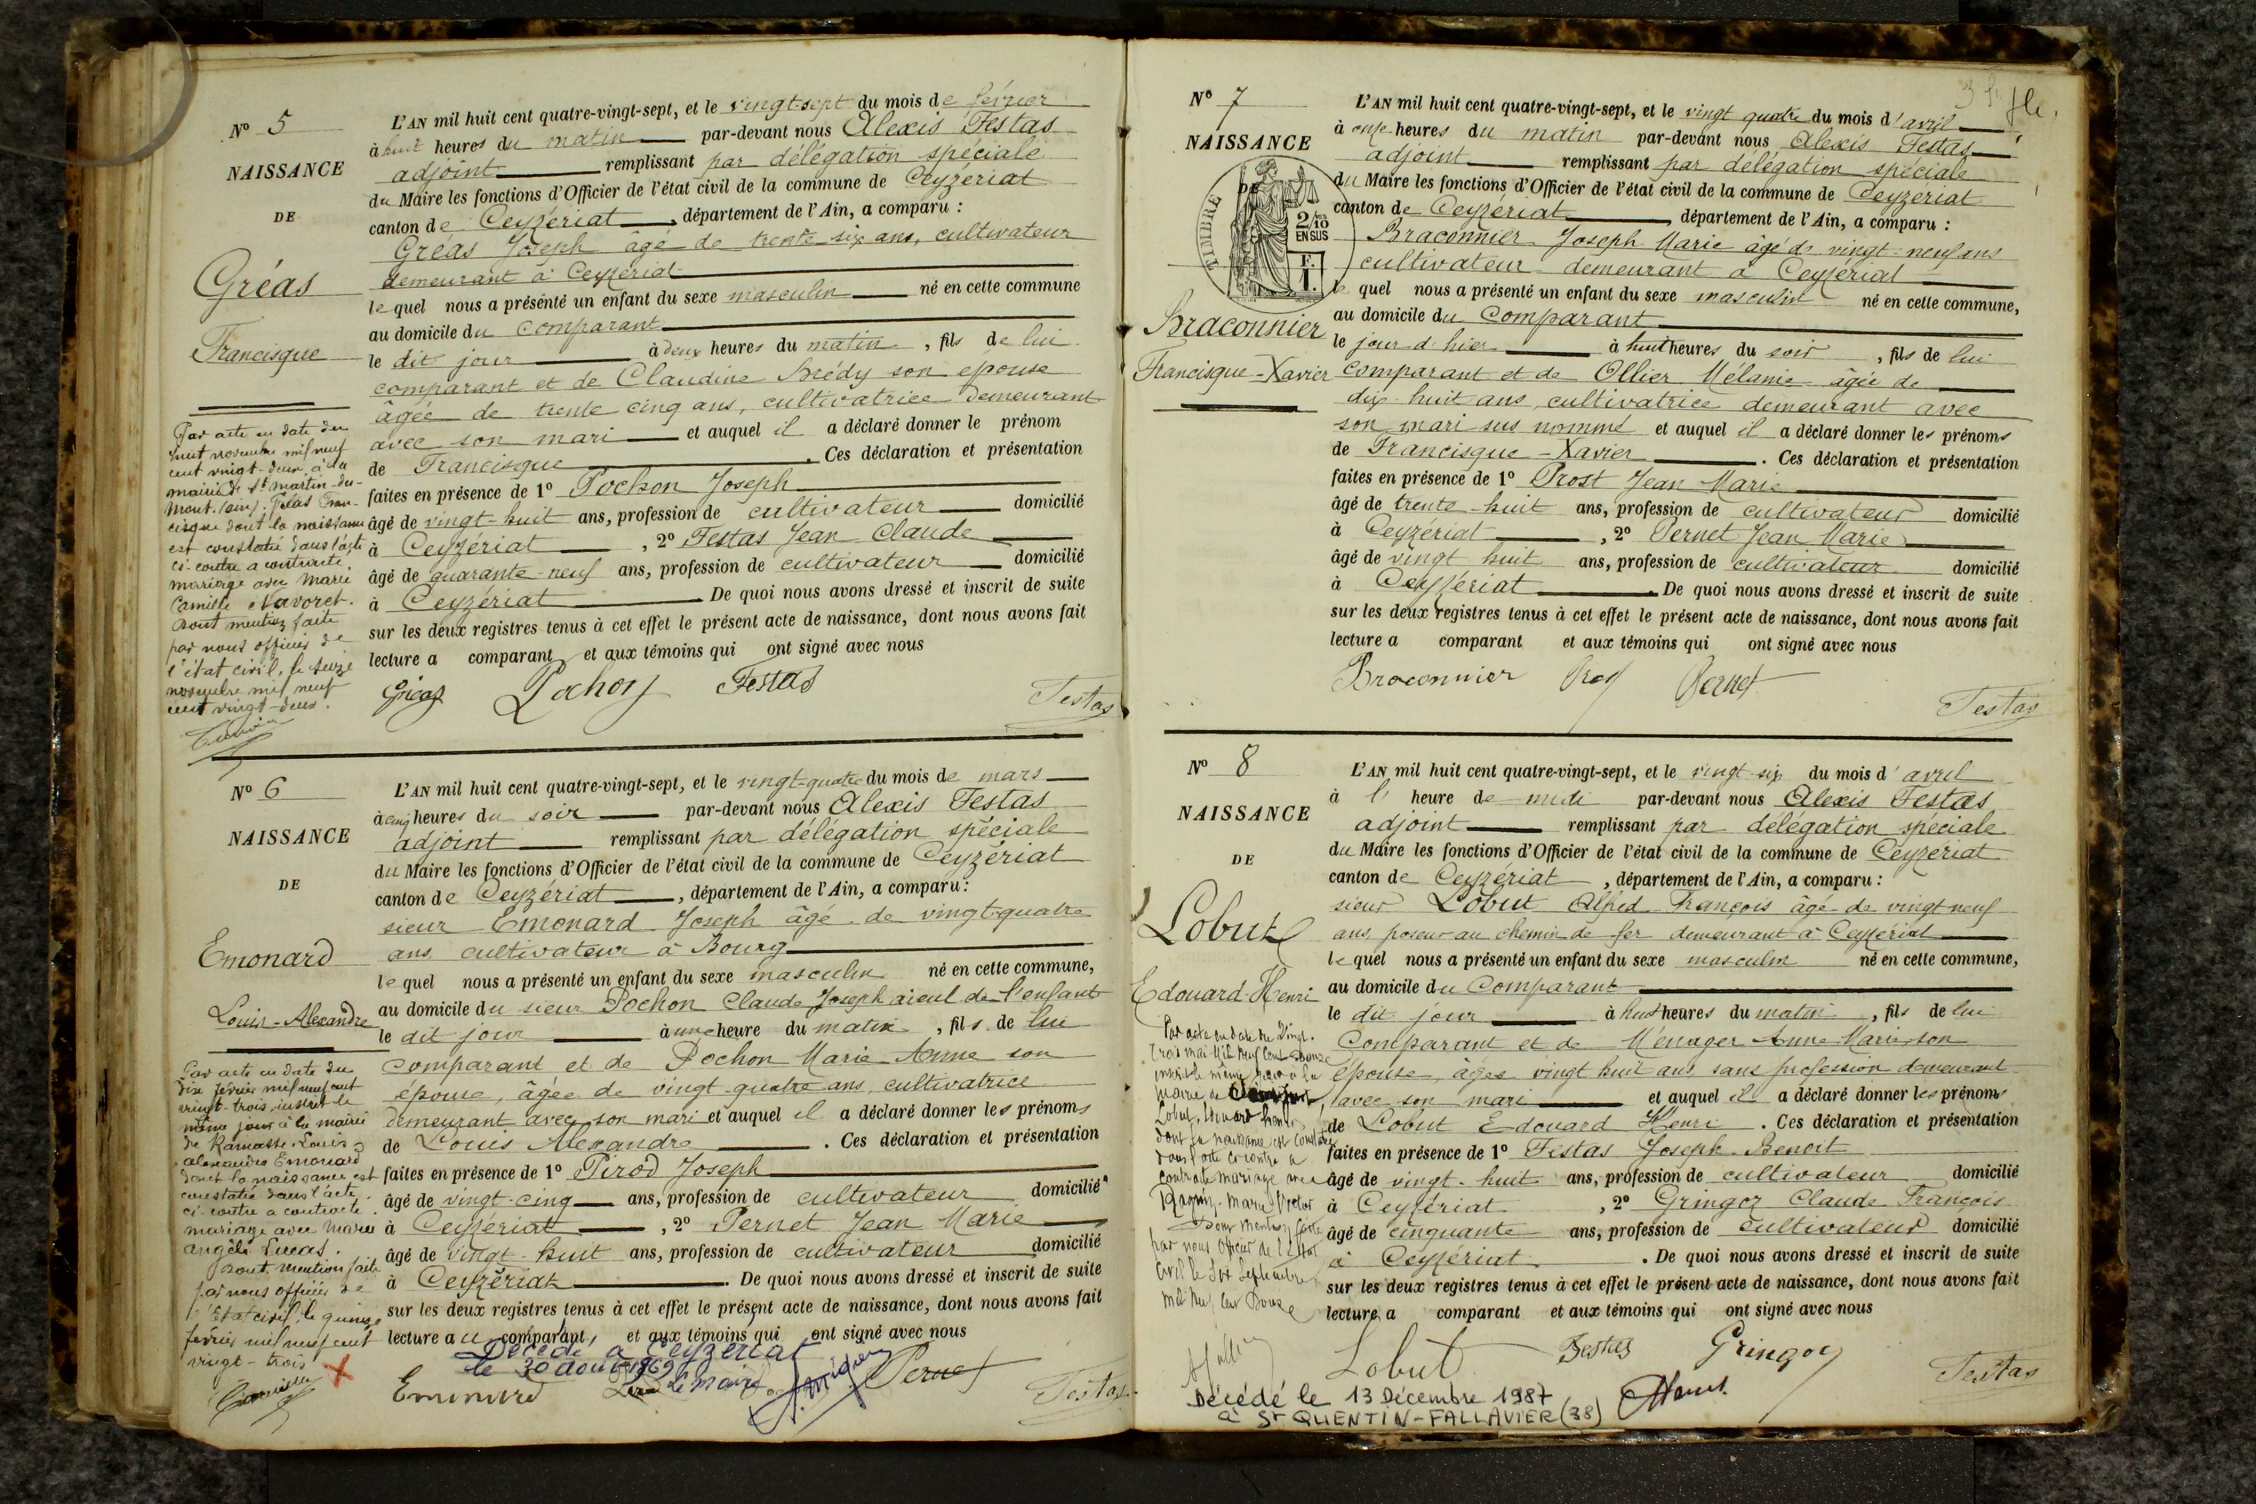 N° 5
NAISSANCE
DE
Gréas
Francisque
L'AN mil huit cent quatre-vingt-sept, et le vingt-sept du mois de février
à huit heures du matin par-devant nous Alexis Festas
adjoint remplissant par délégation spéciale
du Maire les fonctions d'Officier de l'état civil de la commune de Ceyzériat
canton de Ceyzériat, département de l'Ain, a comparu :
Gréas Joseph âgé de trente six ans, cultivateur
demeurant à Ceyzériat
lequel nous a présenté un enfant du sexe masculin né en cette commune
au domicile du comparant
le dit jour à deux heures du matin, fils de lui
comparant et de Claudine Brédy son épouse
âgée de trente cinq ans, cultivatrice demeurant
avec son mari et auquel il a déclaré donner le prénom
de Francisque. Ces déclaration et présentation
faites en présence de 1° Pochon Joseph
âgé de vingt-huit ans, profession de cultivateur domicilié
à Ceyzériat, 2° Festas Jean Claude
âgé de quarante-neuf ans, profession de cultivateur domicilié
à Ceyzériat. De quoi nous avons dressé et inscrit de suite
sur les deux registres tenus à cet effet le présent acte de naissance, dont nous avons fait
lecture a comparant et aux témoins qui ont signé avec nous
Gréas Pochon Festas Festas
Par acte en date du
huit novembre mil neuf
cent vingt-deux, à la
mairie de St Martin-du-
Mont (Ain). Gréas Fran-
cisque dont la naissance
est constatée dans l'acte
ci-contre a contracté
mariage avec Marie
Camille Navoret.
Dont mention faite
par nous officier de
l'état civil, le seize
novembre mil neuf
cent vingt-deux.
N° 6
NAISSANCE
DE
Emonard
Louis-Alexandre
L'AN mil huit cent quatre-vingt-sept, et le vingt-quatre du mois de mars
à cinq heures du soir par-devant nous Alexis Festas
adjoint remplissant par délégation spéciale
du Maire les fonctions d'Officier de l'état civil de la commune de Ceyzériat
canton de Ceyzériat, département de l'Ain, a comparu :
sieur Emonard Joseph âgé de vingt-quatre
ans cultivateur à Bourg
lequel nous a présenté un enfant du sexe masculin né en cette commune,
au domicile du sieur Pochon Claude Joseph aïeul de l'enfant
le dit jour à une heure du matin, fils de lui
comparant et de Pochon Marie-Anne son
épouse, âgée de vingt-quatre ans, cultivatrice
demeurant avec son mari et auquel il a déclaré donner les prénoms
de Louis Alexandre. Ces déclaration et présentation
faites en présence de 1° Pirod Joseph
âgé de vingt-cinq ans, profession de cultivateur domicilié
à Ceyzériat, 2° Pernet Jean Marie
âgé de vingt-huit ans, profession de cultivateur domicilié
à Ceyzériat. De quoi nous avons dressé et inscrit de suite
sur les deux registres tenus à cet effet le présent acte de naissance, dont nous avons fait
lecture au comparant, et aux témoins qui ont signé avec nous
Décédé à Ceyzériat
le 30 août 1969
Le Maire
Emonard Pernet Festas
Par acte en date du
dix février mil neuf cent
vingt-trois, inscrit le
même jour à la mairie
de Ramasse. Louis
alexandre Emonard
dont la naissance est
constatée dans l'acte
ci-contre a contracté
mariage avec Marie
angèle Lucas.
Dont mention faite
par nous officier de
l'Etat civil, le quinze
février mil neuf cent
vingt-trois
N° 7
NAISSANCE
TIMBRE
2/10
EN SUS
F.
1.
Braconnier
Francisque-Xavier
L'AN mil huit cent quatre-vingt-sept, et le vingt quatre du mois d'avril
à onze heures du matin par-devant nous Alexis Festas
adjoint remplissant par délégation spéciale
du Maire les fonctions d'Officier de l'état civil de la commune de Ceyzériat
canton de Ceyzériat, département de l'Ain, a comparu :
Braconnier Joseph Marie âgé de vingt-neuf ans
cultivateur demeurant à Ceyzériat
lequel nous a présenté un enfant du sexe masculin né en cette commune,
au domicile du comparant
le jour d'hier à huit heures du soir, fils de lui
comparant et de Ollier Mélanie âgée de
dix-huit ans, cultivatrice demeurant avec
son mari sus nommé et auquel il a déclaré donner les prénoms
de Francisque-Xavier. Ces déclaration et présentation
faites en présence de 1° Prost Jean Marie
âgé de trente-huit ans, profession de cultivateur domicilié
à Ceyzériat, 2° Pernet Jean Marie
âgé de vingt huit ans, profession de cultivateur domicilié
à Ceyzériat. De quoi nous avons dressé et inscrit de suite
sur les deux registres tenus à cet effet le présent acte de naissance, dont nous avons fait
lecture a comparant et aux témoins qui ont signé avec nous
Braconnier Pernet Festas
N° 8
NAISSANCE
DE
Lobut
Edouard Henri
L'AN mil huit cent quatre-vingt-sept, et le vingt-six du mois d'avril
à l'heure de midi par-devant nous Alexis Festas
adjoint remplissant par délégation spéciale
du Maire les fonctions d'Officier de l'état civil de la commune de Ceyzériat
canton de Ceyzériat, département de l'Ain, a comparu :
sieur Lobut Alfred François âgé de vingt neuf
ans, poseur au chemin de fer demeurant à Ceyzériat
lequel nous a présenté un enfant du sexe masculin né en cette commune,
au domicile du Comparant
le dit jour à huit heures du matin, fils de lui
Comparant et de Ménager Anne Marie son
épouse, âgée vingt huit ans, sans profession demeurant
avec son mari et auquel il a déclaré donner les prénoms
de Lobut Edouard Henri. Ces déclaration et présentation
faites en présence de 1° Festas Joseph-Benoit
âgé de vingt-huit ans, profession de cultivateur domicilié
à Ceyzériat, 2° Gringoz Claude François
âgé de cinquante ans, profession de cultivateur domicilié
à Ceyzériat. De quoi nous avons dressé et inscrit de suite
sur les deux registres tenus à cet effet le présent acte de naissance, dont nous avons fait
lecture a comparant et aux témoins qui ont signé avec nous
Lobut Festas Gringoz Festas
Par acte en date du vingt-
trois mai mil neuf cent douze
inscrit le même jour à la
mairie de
Lobut, Edouard Henri,
dont la naissance est constatée
dans l'acte ci-contre a
contracté mariage avec
Marie
Dont mention faite
par nous officier de l'Etat
Civil le Septembre
mil neuf cent Douze
Décédé le 13 Décembre 1987
à St QUENTIN-FALLAVIER (38)